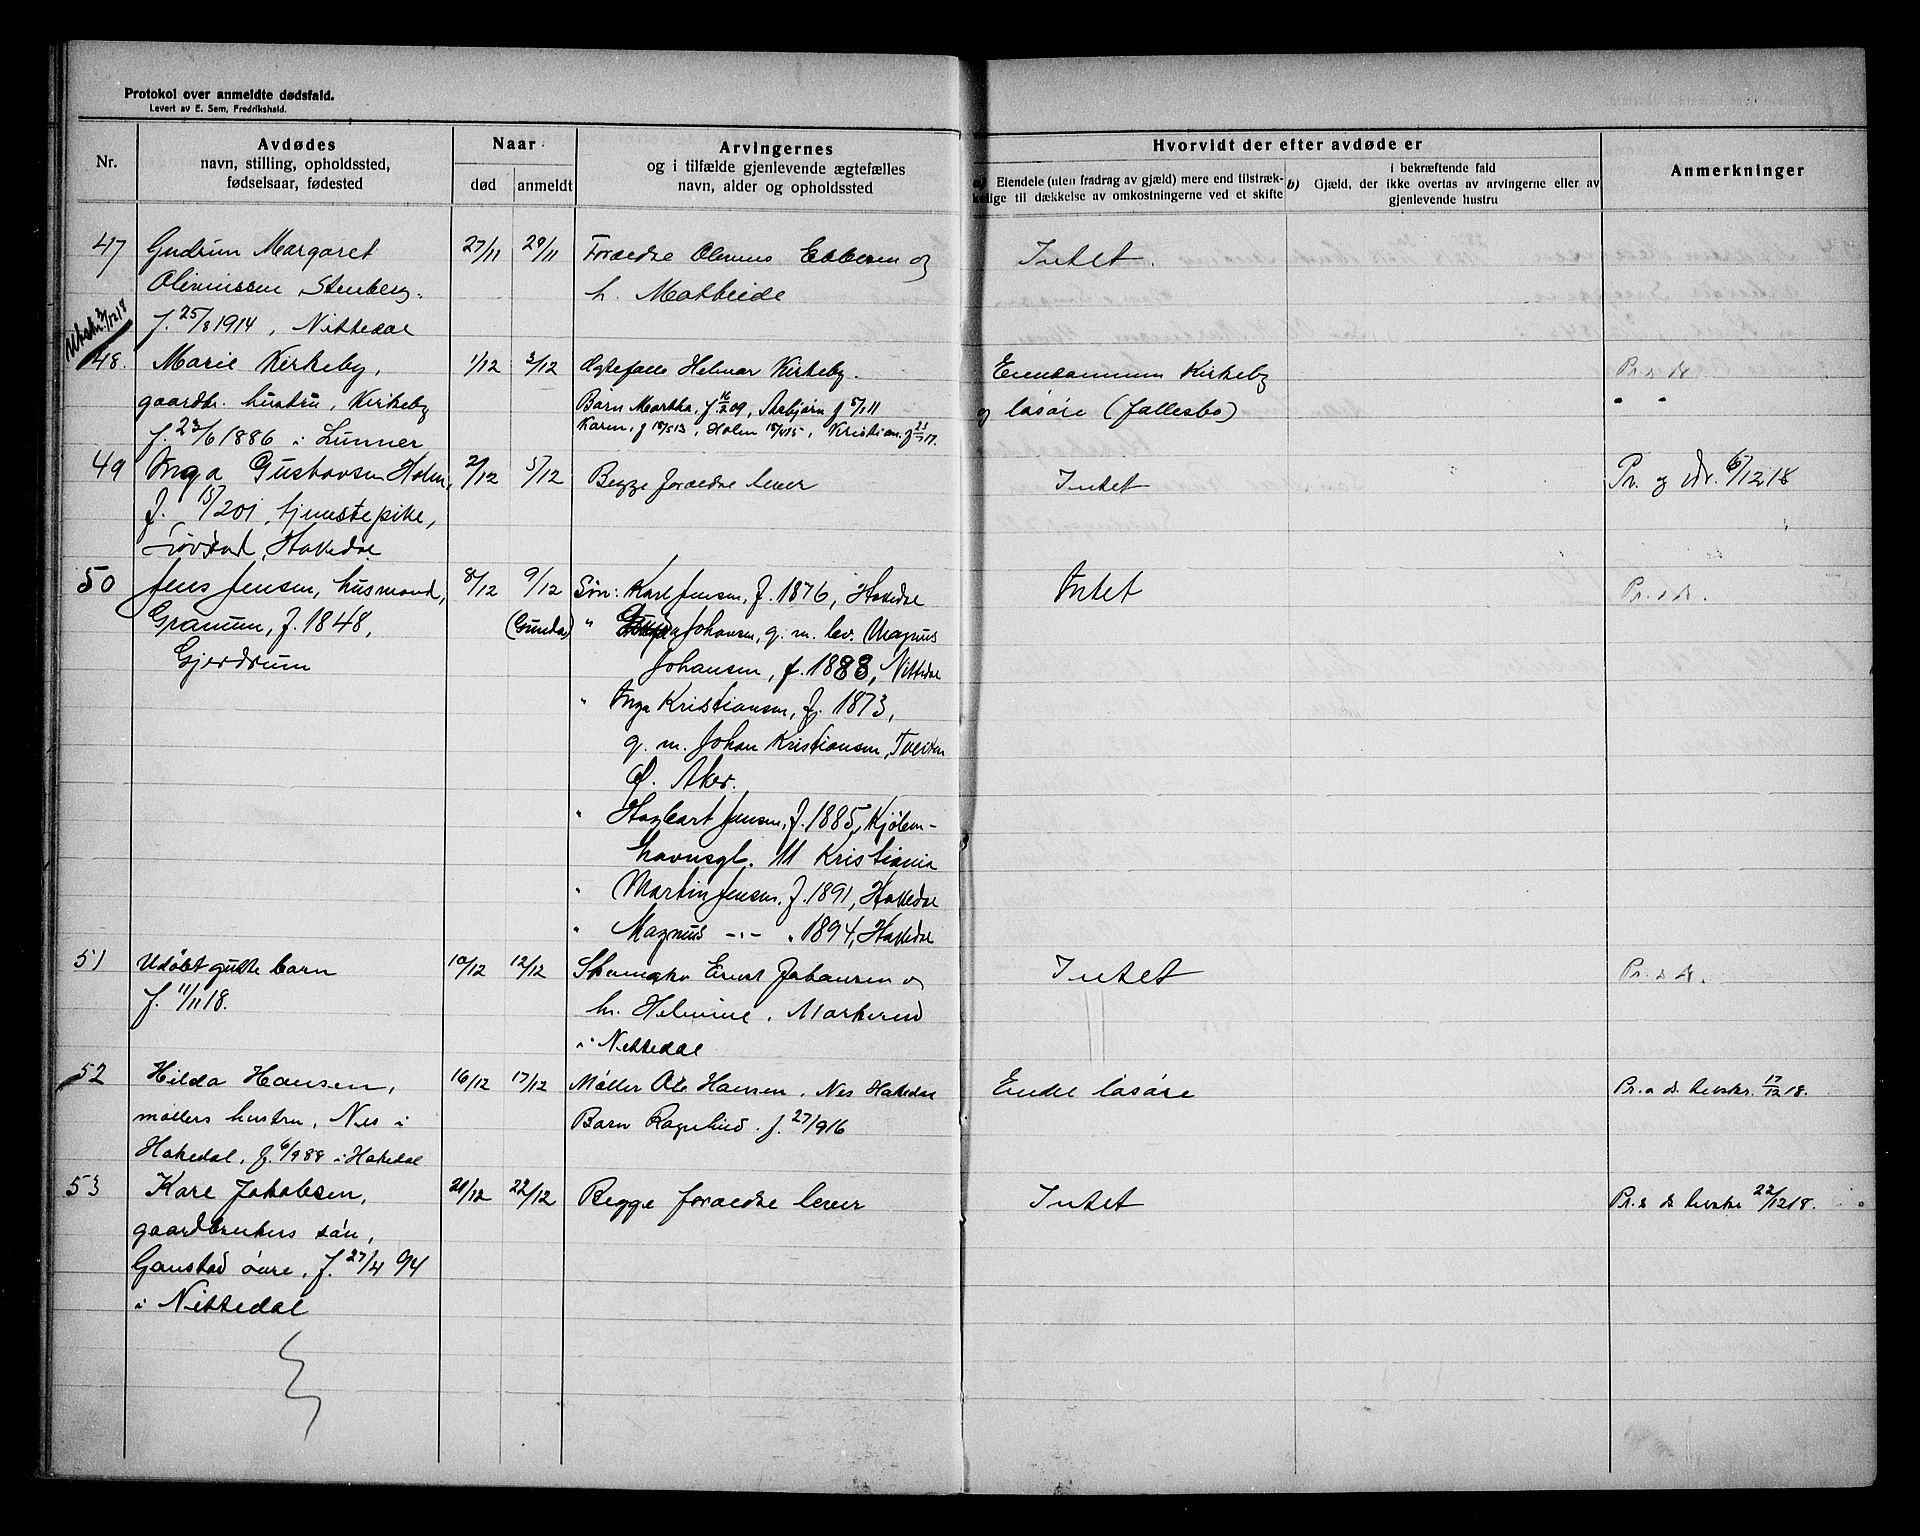 Protokol over anmeldte dødsfald.
Levert av E. Sem, Fredrikshald.
Nr.
Avdødes
navn, stilling, opholdssted,
fødselsaar, fødested
Naar
død
anmeldt
Arvingernes
og i tilfælde gjenlevende ægtefælles
navn, alder og opholdssted
Hvorvidt der efter avdøde er
a) Eiendele (uten fradrag av gjæld) mere end tilstræk-
kelige til dækkelse av omkostningerne ved et skifte
i bekræftende fald
b) Gjæld, der ikke overtas av arvingerne eller av
gjenlevende hustru
Anmerkninger
47
Gudrun Margaret
Oliviussen Stenberg.
f. 25/8 1914, Nittedal
27/11
29/11
Forældre Olevius Ebbesen og
h. Mathilde
Intet.
Utskr. 3/12 18
48.
Marie Kirkeby,
gaardbr. hustru, Kirkeby
f. 23/6 1886 i Lunner
1/12
3/12
Ægtefælle Helmar Kirkeby.
Barn Martha, f. 16/2 09, Asbjørn f 5/1 11
Karen, f 18/5 13, Holm 18/4 15, Kristian f 23/1 17.
Eiendommen Kirkeby
og løsøre (fællesbo)
Pr. & dr
" "
49
Inga Gustavsen Holm,
f. 15/2 01, tjenestepike,
Løvstad, Hakedal
2/12
5/12
Begge forældre lever
Intet
Pr. og dr. 6/12 18
50
Jens Jensen, husmand,
Granum, f. 1848,
Gjerdrum
8/12
9/12
(Gunda)
Søn: Karl Jensen, f. 1876, Hakedal
" Johansen, g. m. lev. Magnus
Johansen, f. 1888, Nittedal
" Inga Kristiansen, f. 1873,
g. m. Johan Kristiansen, Tveiten
Ø. Aker.
" Hagbart Jensen, f. 1885, Kjøben-
havnsgt. 11 Kristiania
" Martin Jensen, f. 1891, Hakedal
" Magnus -"- " 1894, Hakedal
Intet
Pr. & dr.
51
Udøbt guttebarn
f. 11/11 18.
10/12
12/12
Skomaker Ernst Johansen og
h. Helmine, Markerud
i Nittedal
Intet
Pr. & dr.
52
Hilda Hansen,
møllers hustru, Nes i
Hakedal, f. 6/9 88 i Hakedal
16/12
17/12
Møller Ole Hansen, Nes Hakedal
Barn Ragnhild f. 27/9 16
Endel løsøre
Pr. & dr. utskr. 17/12 18.
53
Kåre Jakobsen,
gaardbrukers søn,
Gaustad øvre, f. 27/4 94
i Nittedal
21/12
22/12
Begge forældre lever
Intet
Pr. & dr utskr 22/12 18.